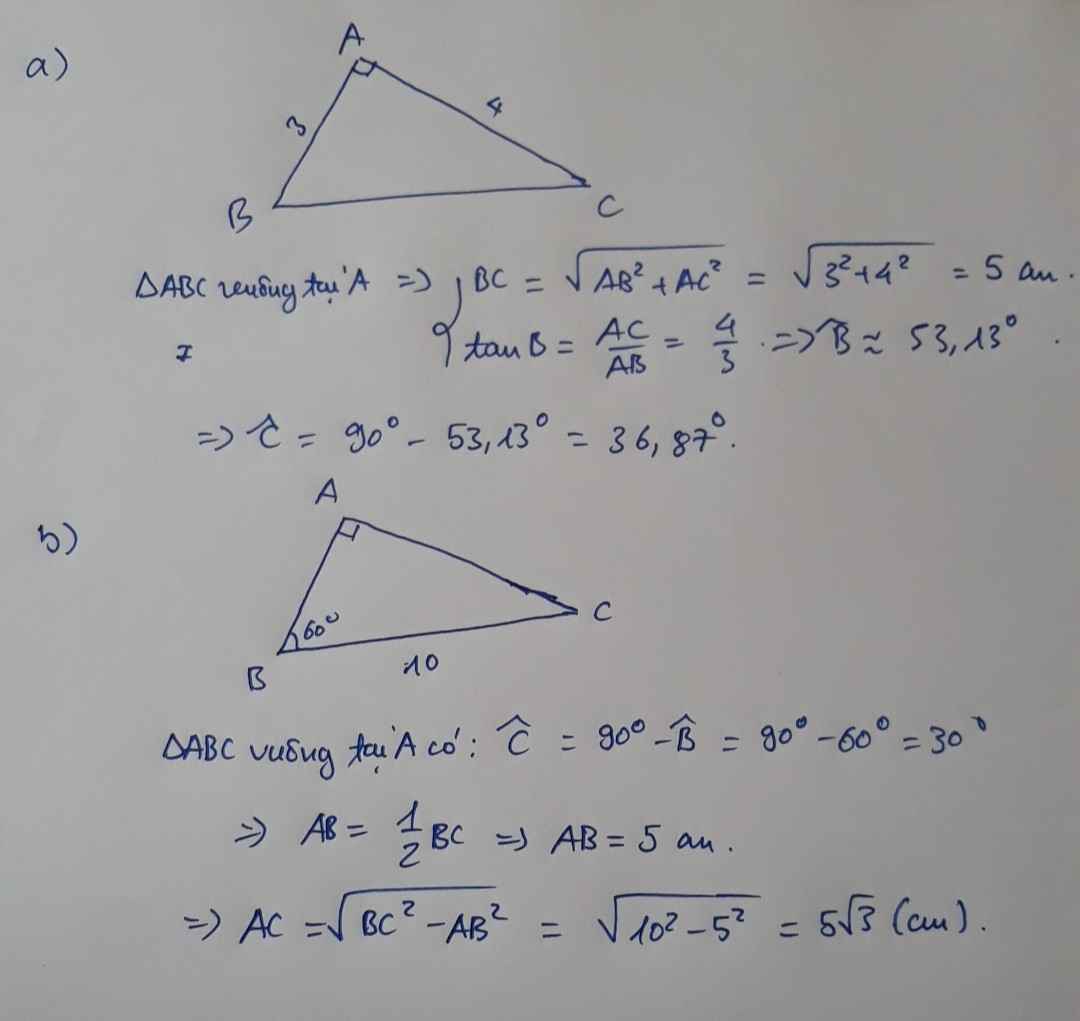 a)
A
3
4
B
C
ΔABC vuông tại A => { BC = √(AB² + AC²) = √(3² + 4²) = 5 cm.
tan B = AC/AB = 4/3 . => B̂ ≈ 53,13° .
=> Ĉ = 90° - 53,13° = 36,87°.
b)
A
60°
B
10
C
ΔABC vuông tại A có: Ĉ = 90° - B̂ = 90° - 60° = 30°
=> AB = 1/2 BC => AB = 5 cm.
=> AC = √(BC² - AB²) = √(10² - 5²) = 5√3 (cm).